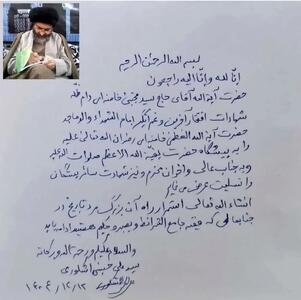 بسم الله الرحمن الرحیم
انا لله و انا الیه راجعون
حضرت آیة الله آقای حاج سید مجتبی خامنه‌ای دام ظله
شهادت افتخارآفرین و غم‌انگیز امام الشهداء والد ماجد
حضرت آیة الله العظمی خامنه‌ای رضوان الله تعالی علیه
را به پیشگاه حضرت بقیة الله الاعظم صلوات الله علیه
و به جناب عالی و اخوان مکرم و نیز شهادت سائر بستگان
را تسلیت عرض می‌نمایم
انشاء الله تعالی استمرار راه آن بزرگ مرد تاریخ در
جنابعالی که فقیه جامع الشرائط و بصیر و حکیم هستید ادامه یابد
والسلام علیکم و رحمة الله و برکاته
سید علی حسینی اشکوری
۱۴۰۴/۱۲/۱۲